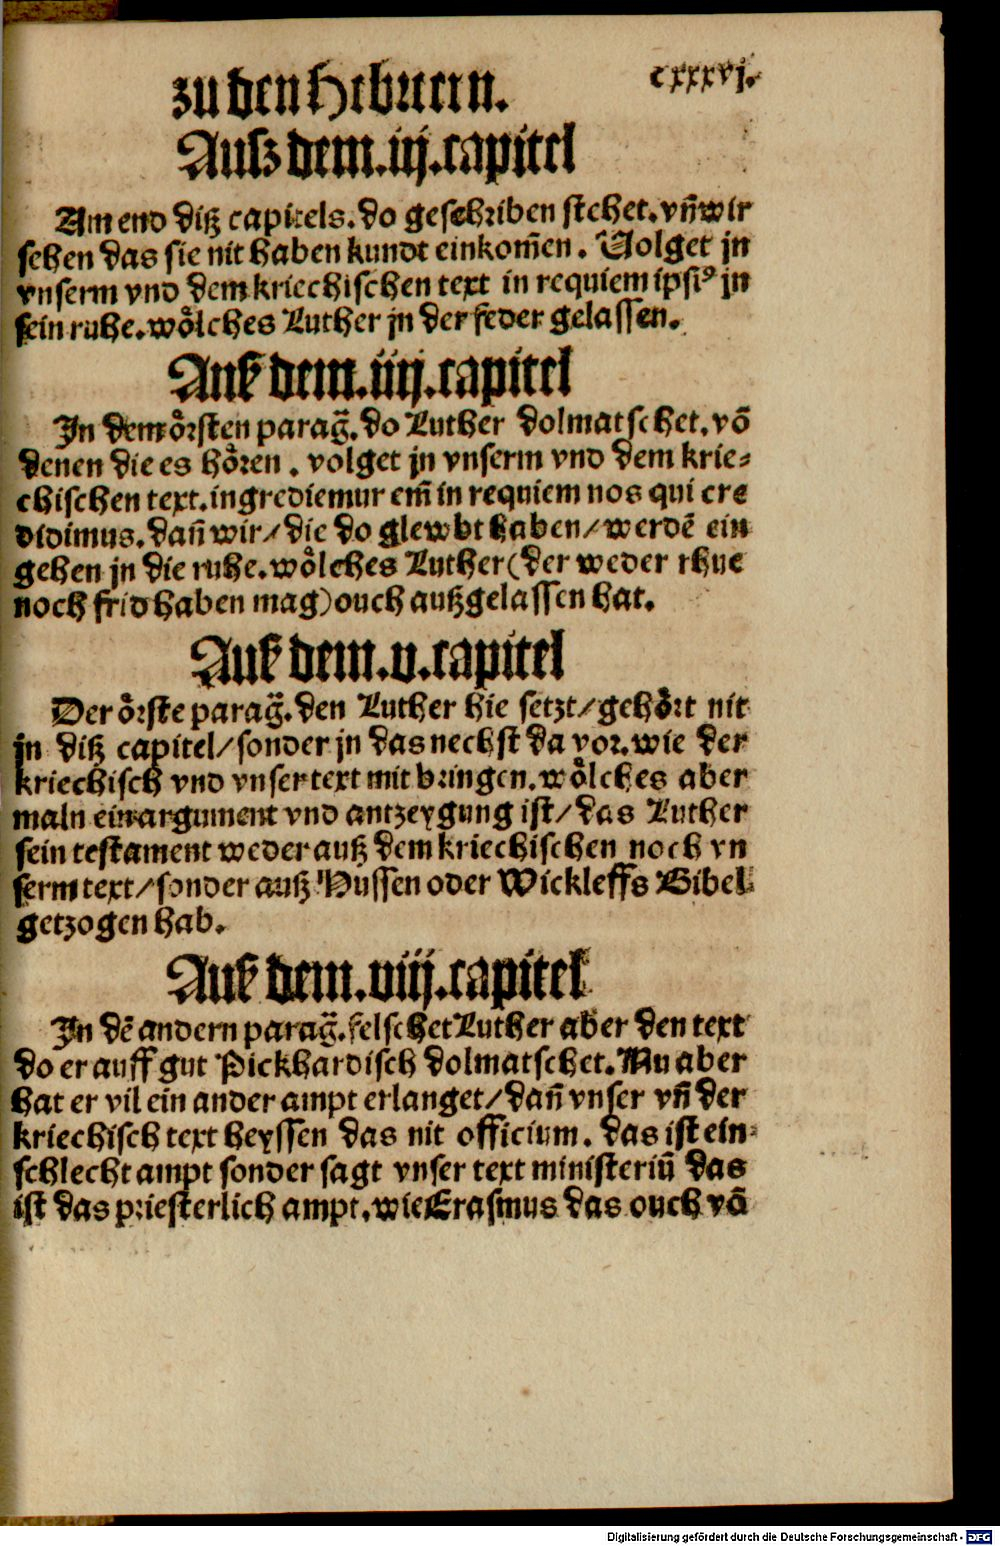 zu den Hebreern. cxxxvj.
Ausz dem .iij. capitel
Am end ditz capitels. do geschriben stehet. vn̄ wir
sehen das sie nit haben kundt einkom̄en. Volget jn
vnserm vnd dem kriechischen text in requiem ipsiꝰ jn
sein ruhe. woͤlches Luther jn der feder gelassen.
Auß dem .iiij. capitel
In dem oͤrsten parag̃. do Luther dolmatschet. võ
denen die es hoͤren. volget jn vnserm vnd dem krie⸗
chischen text. ingrediemur em̄ in requiem nos qui cre
didimus. dan̄ wir/ die do glewbt haben/ werdē ein
gehen jn die ruhe. woͤlches Luther (der weder rhue
noch frid haben mag) ouch autzgelassen hat.
Auß dem .v. capitel
Der oͤrste parag̃. den Luther hie setzt/ gehoͤrt nit
jn ditz capitel/ sonder jn das nechst da vor. wie der
kriechisch vnd vnser text mit bringen. woͤlches aber
maln ein argument vnd antzeygung ist/ das Luther
sein testament weder autz dem kriechischen noch vn
serm text/ sonder autz Hussen oder Wickleffs Bibel
getzogen hab.
Auß dem .viij. capitel
In dē andern parag̃. felschet Luther aber den text
do er auff gut Pickhardisch dolmatschet. Nu aber
hat er vil ein ander ampt erlanget/ dan̄ vnser vn̄ der
kriechisch text heyssen das nit officium. das ist ein
schlecht ampt sonder sagt vnser text ministeriū das
ist das priesterlich ampt. wie Erasmus das ouch vō
Digitalisierung gefördert durch die Deutsche Forschungsgemeinschaft - DFG